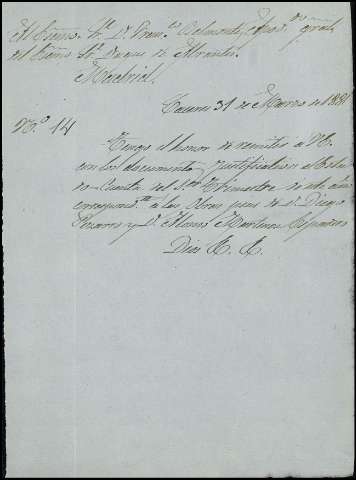 Al Exmo. Sr. D. Fran.co Belmonte, Apod.do gral.
del Exmo. Sr. Duque de Abrantes
Madrid.
Caceres 31 de Marzo de 1881
N.º 14
Tengo el honor de remitir á V.E.
con los documentos justificativos la
Cuenta del 1.er trimestre de este año
correspond.te á las Obras pias de D. Diego
Pizarro y D. Alonso Martinez Espadero
Dios &. &.